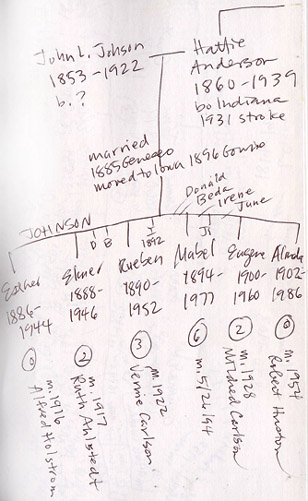 John L. Johson
1853-1922
b. ?
Hattie
Anderson
1860-1939
bo Indiana
1931 stroke
married
1885 Geneseo
moved to Iowa 1896 Gowrie
Donald
Beda
Irene
June
JOHNSON
D
B
H
1892
J
Esther
1886-
1944
Elmer
1888-
1946
Rueben
1890-
1952
Mabel
1894-
1977
Eugene
1900-
1960
1902-
1986
0
m. 1916
Alfred Holstrom
2
m. 1917
Ruth Ahlstedt
3
m. 1922
Vernie Carlson
6
m. 5/26/94
2
m. 1928
Mildred Carlson
0
m. 1954
Robert Huston